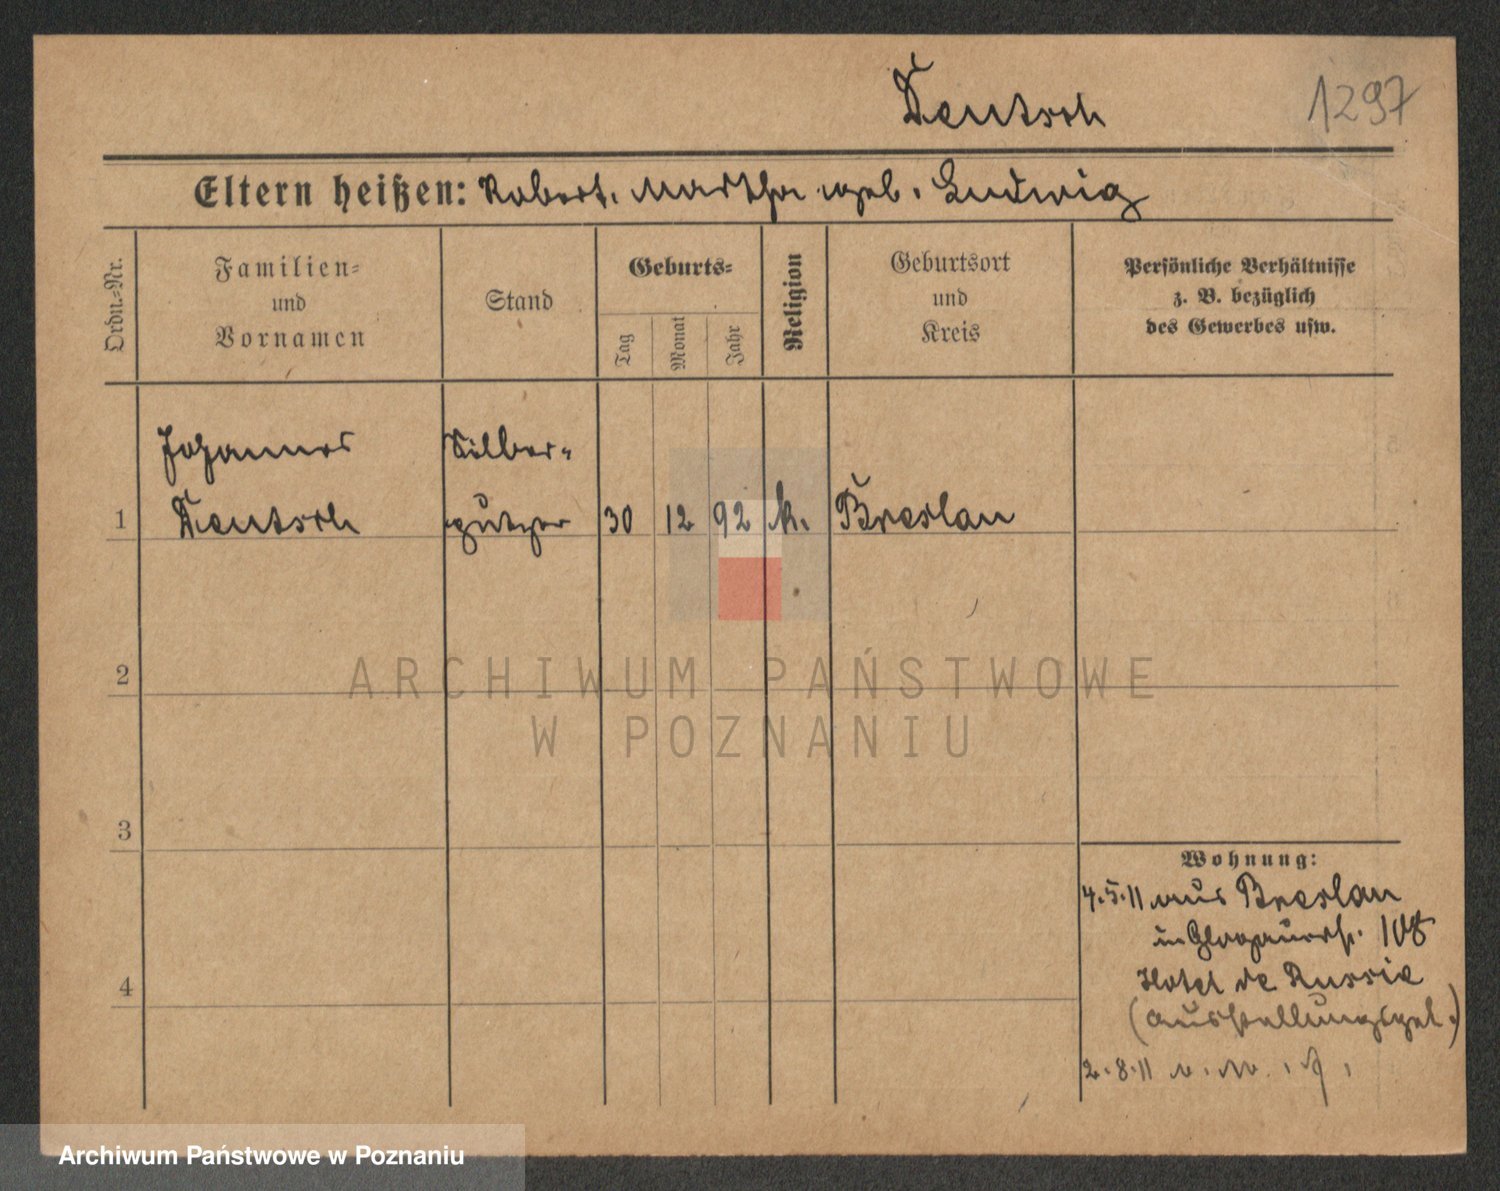 Deutsch
1297
Eltern heißen: Robert. Martha geb. Ludwig
Ordn.=Nr.
Familien=
und
Vornamen
Stand
Geburts=
Tag
Monat
Jahr
Religion
Geburtsort
und
Kreis
Persönliche Verhältnisse
z. B. bezüglich
des Gewerbes usw.
Johannes Silber=
1 Deutsch putzer 30 12 92 k. Breslau
2
3
4
Wohnung:
4.5.11 aus Breslau
in Glogauerstr. 108
Hotel de Russie
(Ausstellungsgel.)
2.8.11
ARCHIWUM PAŃSTWOWE
W POZNANIU
Archiwum Państwowe w Poznaniu